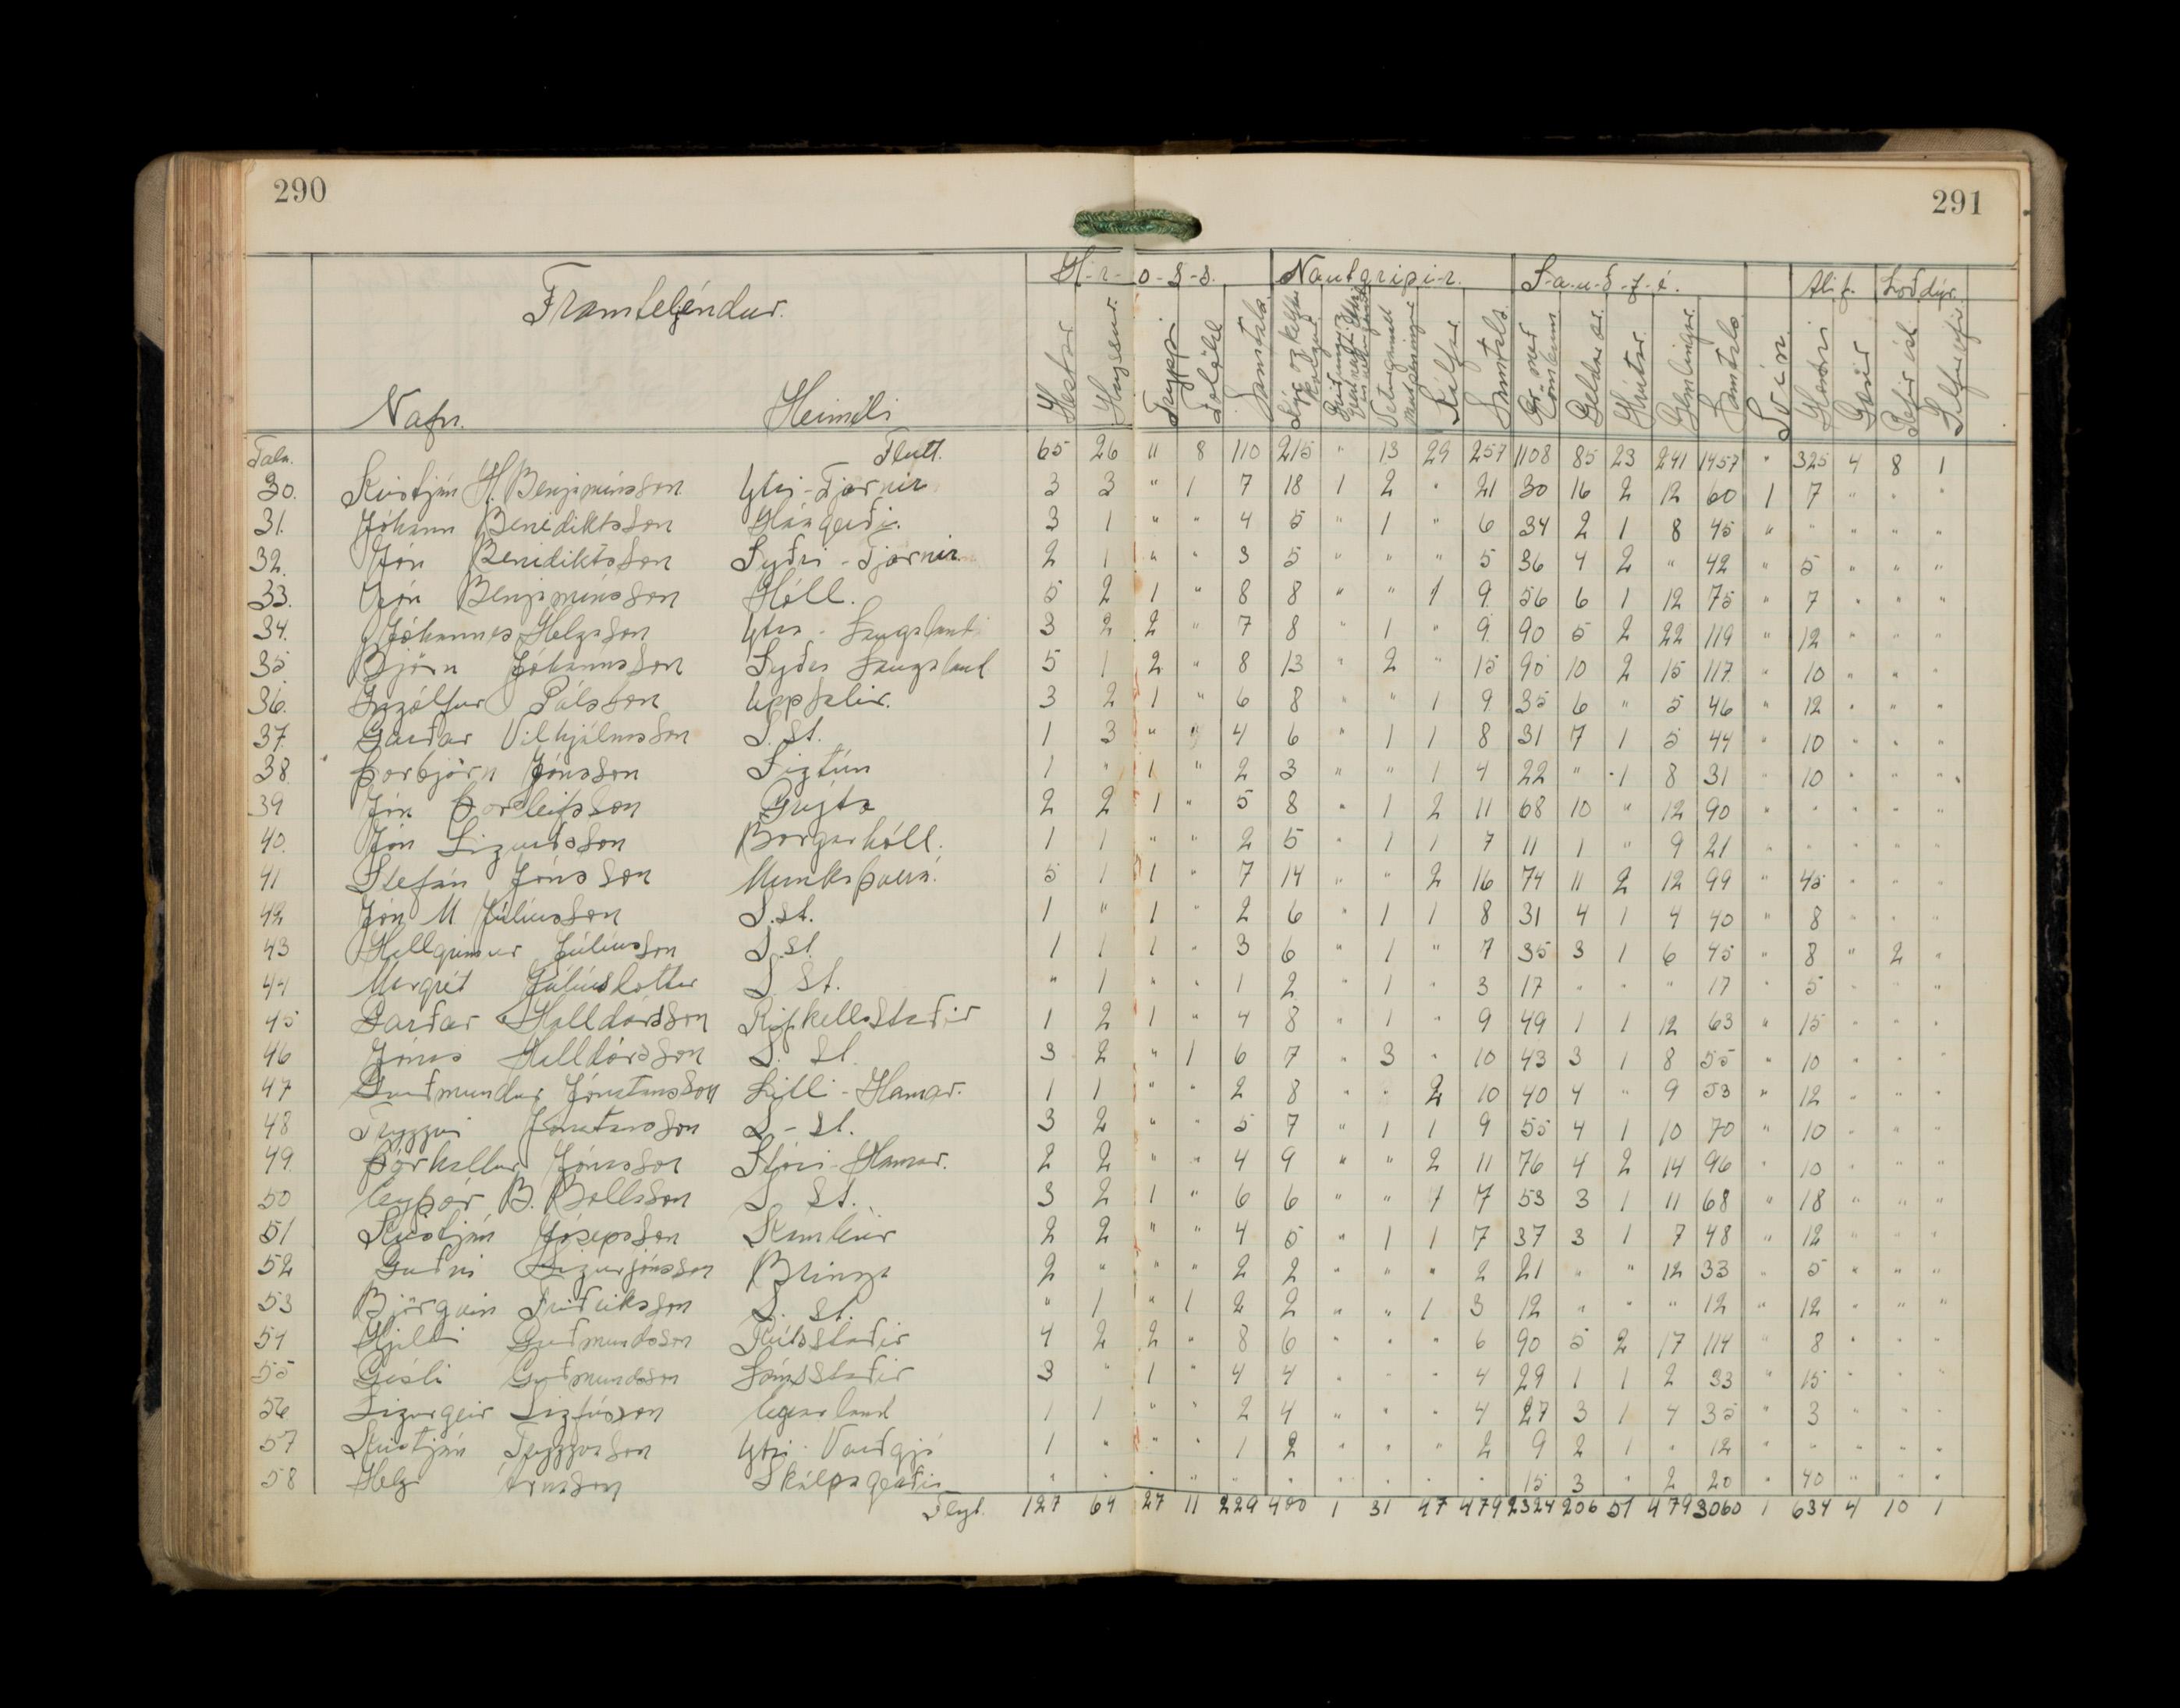 290
291
Framteljéndur.
H-r-o-s-s. Nautgripir. S-a-u-ð-f-é. Alif. Loðdýr.
Nafn. Heimili Hestar Hryssur. Tryppi Folöld Samtals Kýr og kelfdar kvígur Veturgamall nautpeningur Kálfar Samtals Ær með lömbum Geldar ær. Hrútar. Gemlingar. Samtals Svín. Hænsni Gæsir Refir ísl. Silfurrefir
Tala. Flutt. 65 26 " 8 110 215 " 13 29 257 1108 85 23 241 1457 " 325 4 8 1
30. Kristján H. Benjamínsson Ytri-Tjarnir 3 3 " 1 7 18 1 2 " 21 30 16 2 12 60 1 7 " " "
31. Jóhann Benediktsson Háagerði. 3 1 " " 4 5 " 1 " 6 34 2 1 8 45 " " " " "
32. Jón Benediktsson Syðri-Tjarnir. 2 1 " " 3 5 " " " 5 36 4 2 " 42 " 5 " " "
33. Jón Benjamínsson Hóll. 5 2 1 " 8 8 " " 1 9 56 6 1 12 75 " 7 " " "
34. Jóhannes Helgason Ytra-Laugaland 3 2 2 " 7 8 " 1 " 9 90 5 2 22 119 " 12 " " "
35. Björn Jóhannsson Syðra Laugaland 5 1 2 " 8 13 " 2 " 15 90 10 2 15 117 " 10 " " "
36. Ingólfur Pálsson Uppsalir. 3 2 1 " 6 8 " " 1 9 35 6 " 5 46 " 12 " " "
37. Garðar Vilhjálmsson S. St. 1 3 " " 4 6 " 1 1 8 31 7 1 5 44 " 10 " " "
38. Þorbjörn Jónsson Sigtún 1 " 1 " 2 3 " " 1 4 22 " 1 8 31 " 10 " " "
39 Jón Þorleifsson Grýta 2 2 1 " 5 8 " 1 2 11 68 10 " 12 90 " " " " "
40. Jón Sigurðsson Borgarhóll. 1 1 " " 2 5 " 1 1 7 11 1 " 9 21 " " " " "
41 Stefán Jónsson Munkaþverá. 5 1 1 " 7 14 " " 2 16 74 11 2 12 99 " 45 " " "
42 Jón M Júlíusson S. st. 1 " 1 " 2 6 " 1 1 8 31 4 1 4 40 " 8 " " "
43 Hallgrímur Júlíusson S. st. 1 1 1 " 3 6 " 1 " 7 35 3 1 6 45 " 8 " 2 "
44 Margrét Júlíusdóttir S. St. " 1 " " 1 2 " 1 " 3 17 " " " 17 " 5 " " "
45 Garðar Halldórsson Rifkellsstaðir 1 2 1 " 4 8 " 1 " 9 49 1 1 12 63 " 15 " " "
46 Jónas Halldórsson S. St. 3 2 " 1 6 7 " 3 " 10 43 3 1 8 55 " 10 " " "
47 Guðmundur Jónatansson Litli-Hamar. 1 1 " " 2 8 " " 2 10 40 4 " 9 53 " 12 " " "
48 Tryggvi Jónatansson S-St. 3 2 " " 5 7 " 1 1 9 55 4 1 10 70 " 10 " " "
49. Þórhallur Jónasson Stóri-Hamar. 2 2 " " 4 9 " " 2 11 76 4 2 14 96 " 10 " " "
50 Eyþór B. Bollason S. St. 3 2 1 " 6 6 " " 1 7 53 3 1 11 68 " 18 " " "
51 Kristján Jósepsson Rauðhús 2 2 " " 4 5 " 1 1 7 37 3 1 7 48 " 12 " " "
52 Guðni Sigurjónsson Bringa 2 " " " 2 2 " " " 2 21 " " 12 33 " 5 " " "
53 Björgvin Friðriksson S. st. " 1 " 1 2 2 " " 1 3 12 " " " 12 " 12 " " "
54 Hjalti Guðmundsson Rútsstaðir 4 2 2 " 8 6 " " " 6 90 5 2 17 114 " 8 " " "
55 Gísli Guðmundsson Sámsstaðir 3 " 1 " 4 4 " " " 4 29 1 1 2 33 " 15 " " "
56 Sigurgeir Sigfússon Ugnaland 1 1 " " 2 4 " " " 4 27 3 1 4 35 " 3 " " "
57 Kristján Tryggvason Ytri-Varðgjá 1 " " " 1 2 " " " 2 9 2 1 " 12 " " " " "
58 Helgi Árnason Skálpagerði " " " " " " " " " " 15 3 " 2 20 " 40 " " "
Flyt. 127 64 27 11 229 400 1 31 47 479 2324 206 51 479 3060 1 634 4 10 1